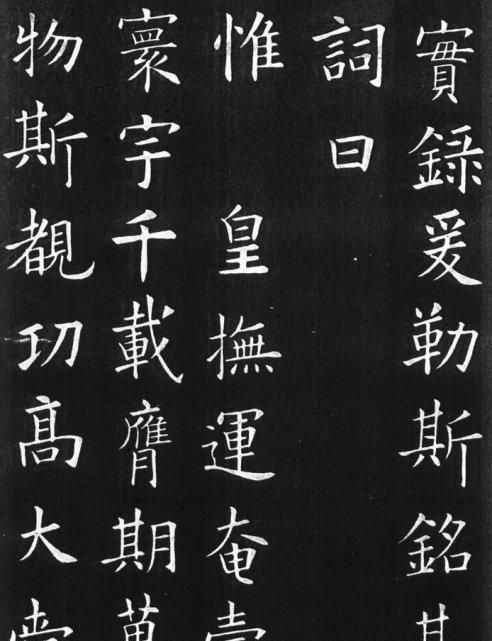 實録爰勒斯銘其
詞曰
惟 皇撫運奄壹
寰宇千載膺期萬
物斯覩㓛髙大